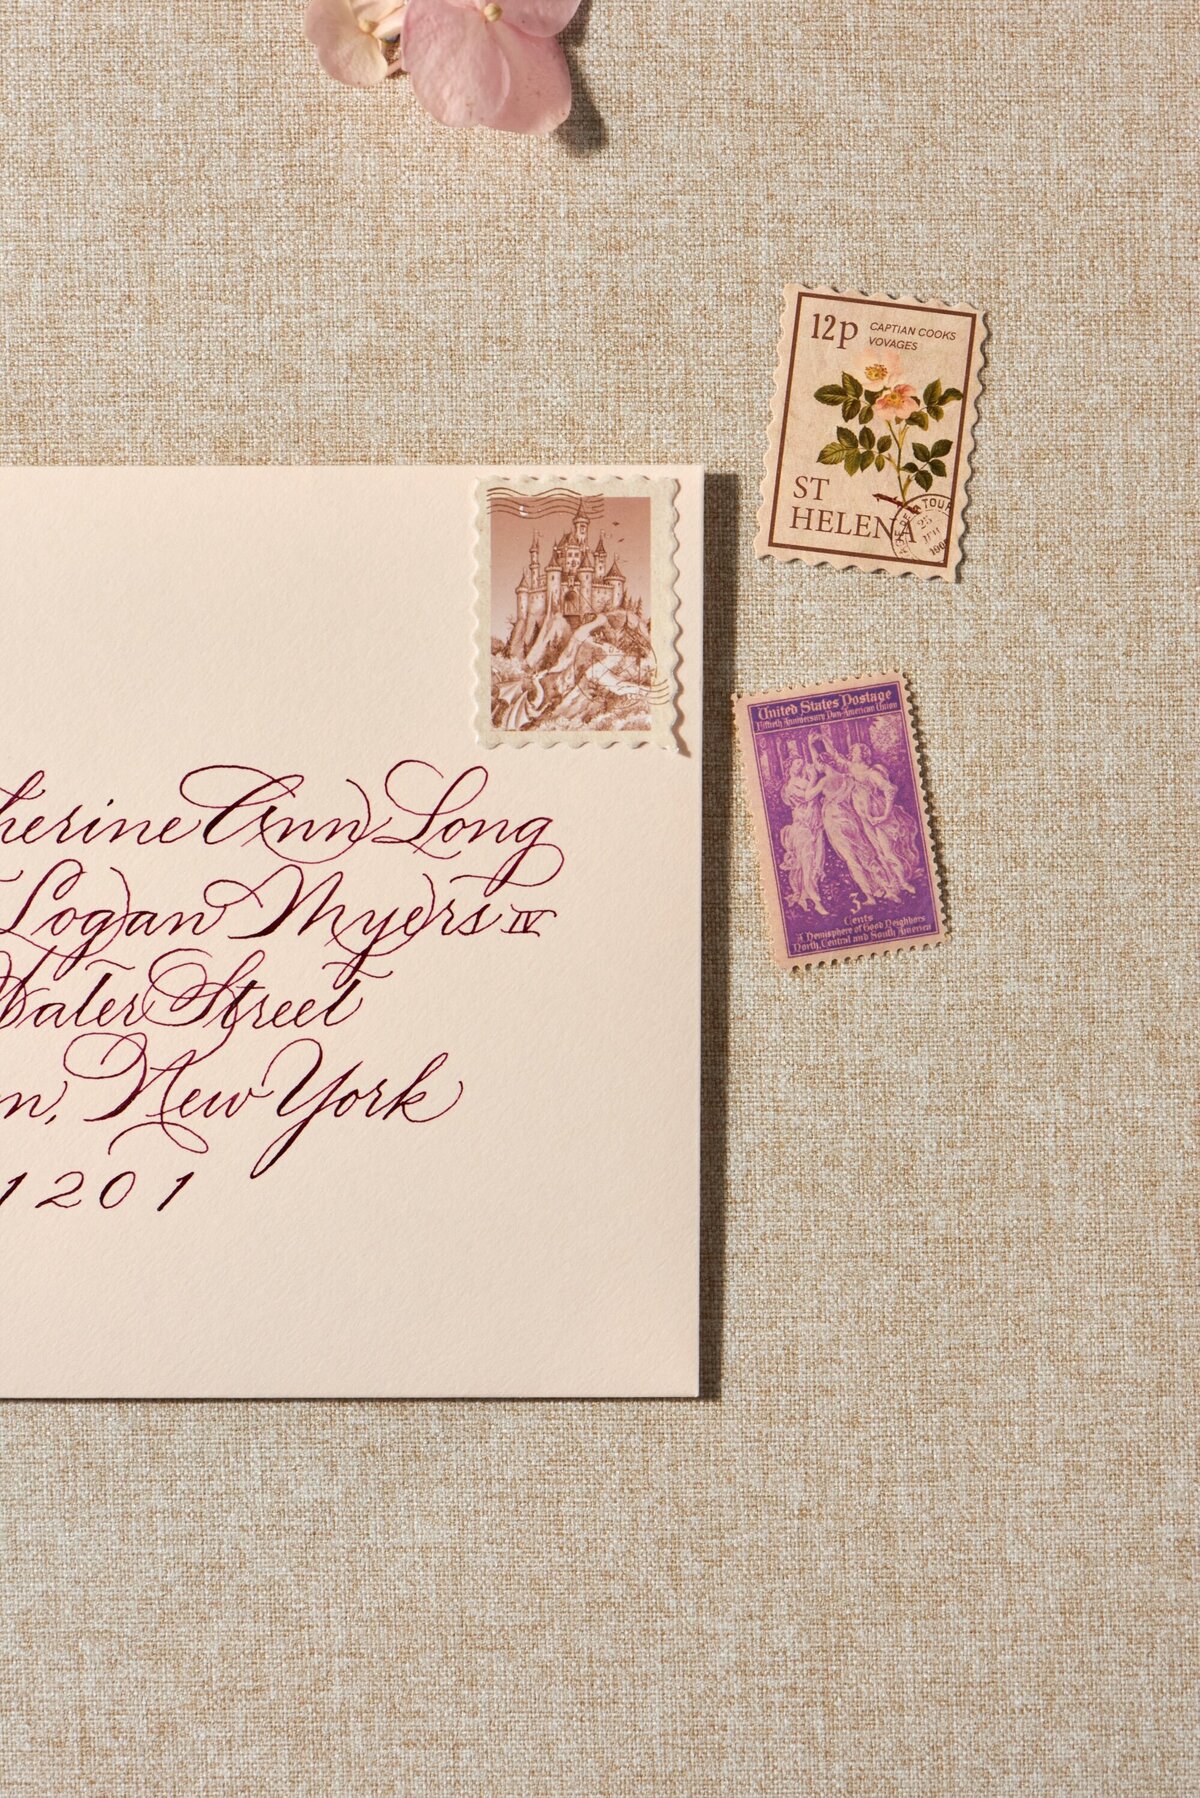 12p
CAPTIAN COOKS
VOVAGES
ST
HELENA
TOUR
25
United States Postage
Fiftieth Anniversary Pan-American Union
3
Cents
A Hemisphere of Good Neighbors
North, Central and South America
herine Ann Long
Logan Myers IV
Water Street
n, New York
1201